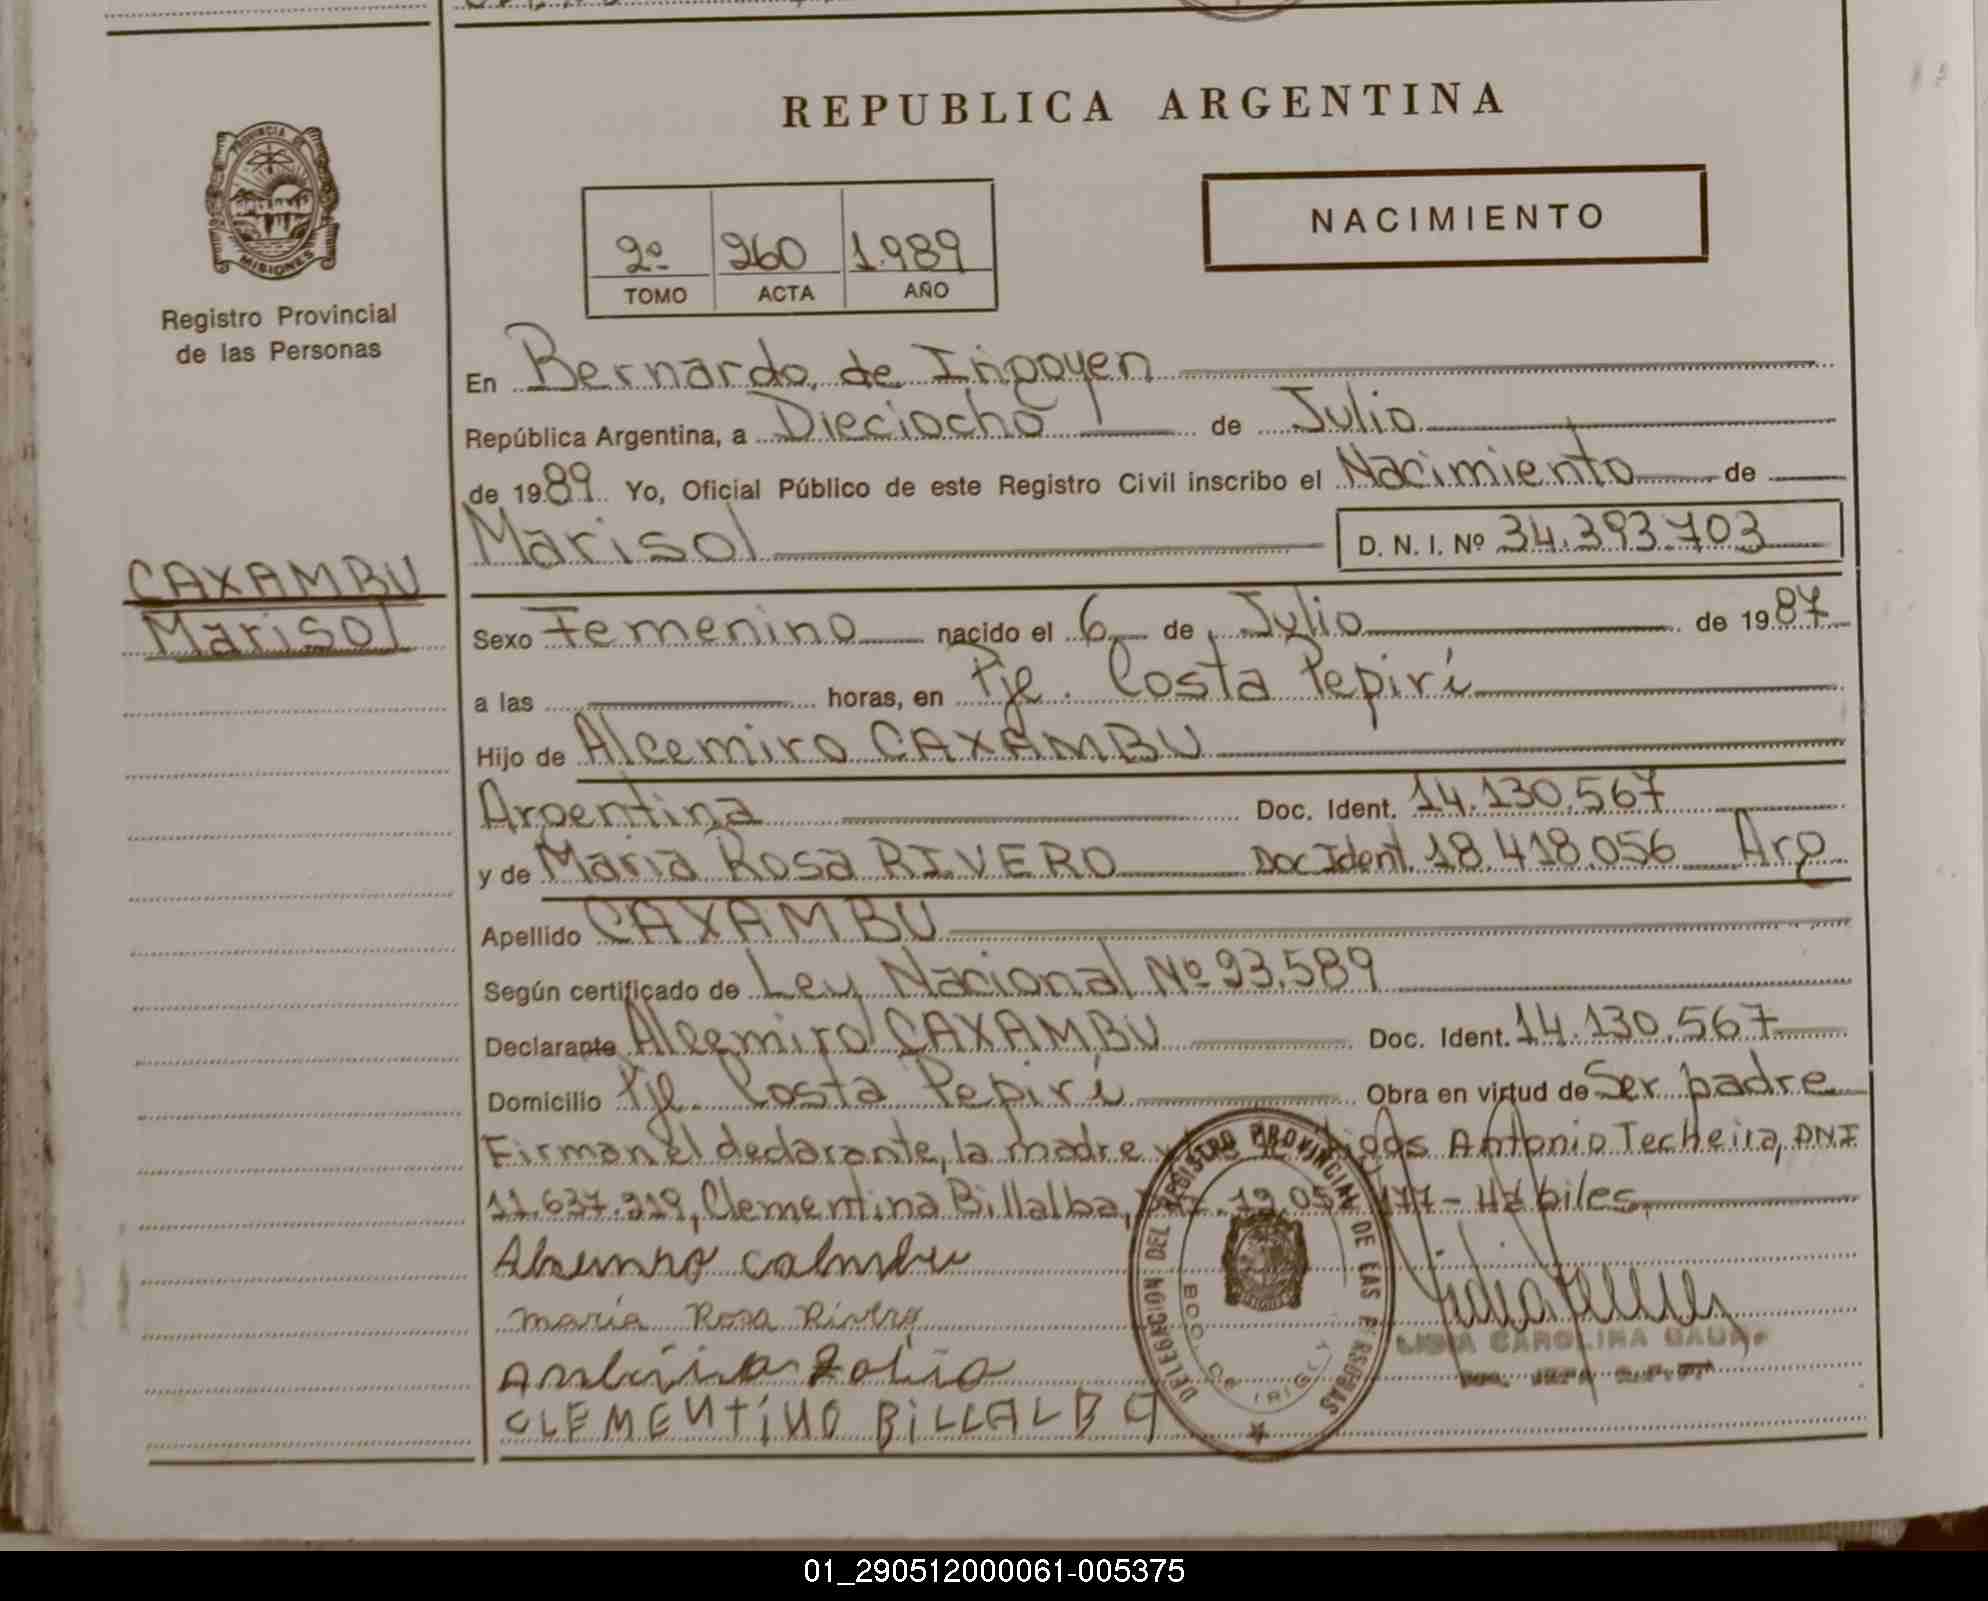 REPUBLICA ARGENTINA
PROVINCIA DE
MISIONES
Registro Provincial
de las Personas
NACIMIENTO
2º 260 1.989
TOMO ACTA AÑO
En Bernardo de Irigoyen
República Argentina, a Dieciocho de Julio
de 1989 Yo, Oficial Público de este Registro Civil inscribo el Nacimiento de
Marisol D. N. I. Nº 34.393.703
CAXAMBU
Marisol
Sexo Femenino nacido el 6 de Julio de 1987
a las horas, en Pje. Costa Pepirí
Hijo de Alcemiro CAXAMBU
Argentina Doc. Ident. 14.130.567
y de Maria Rosa RIVERO Doc Ident. 18.418.056 Arg
Apellido CAXAMBU
Según certificado de Ley Nacional Nº 23.589
Declarante Alcemiro CAXAMBU Doc. Ident. 14.130.567
Domicilio Pje. Costa Pepirí Obra en virtud de Ser padre
Firman el declarante, la madre y Antonio Techeira, DNI
11.637.219, Clementina Billalba, Hábiles
maria Rosa Rivero
CLEMENTINO BILLALBA
DELEGACION DEL REGISTRO PROVINCIAL DE LAS PERSONAS
BDO. DE IRIGOYEN
LIDIA CAROLINA
01_290512000061-005375